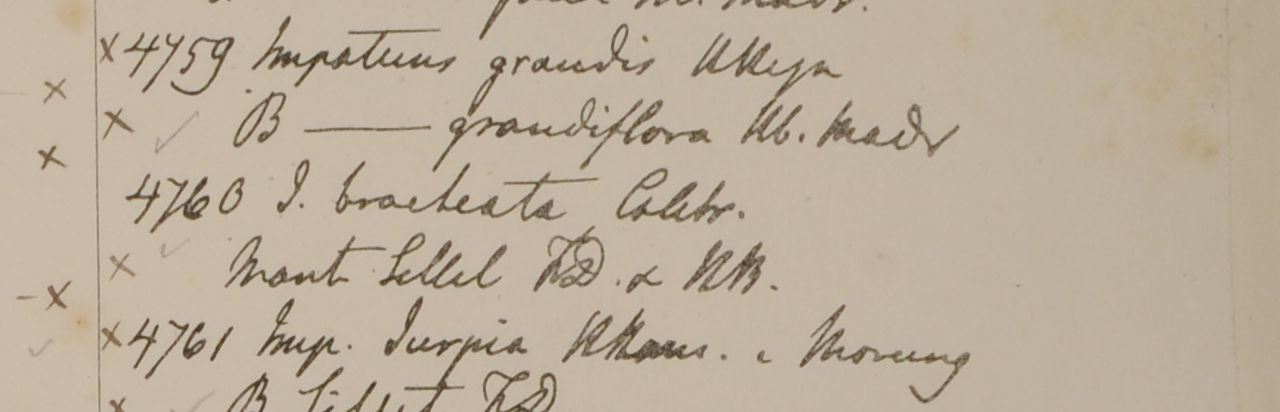 × 4759 Impatiens grandis
× B —— grandiflora Hb. Madr
4760 I. bracteata Colebr.
× Mont Sillet F.D. & HB.
× 4761 Imp. Jurpia & Morung
× B Sillet FD